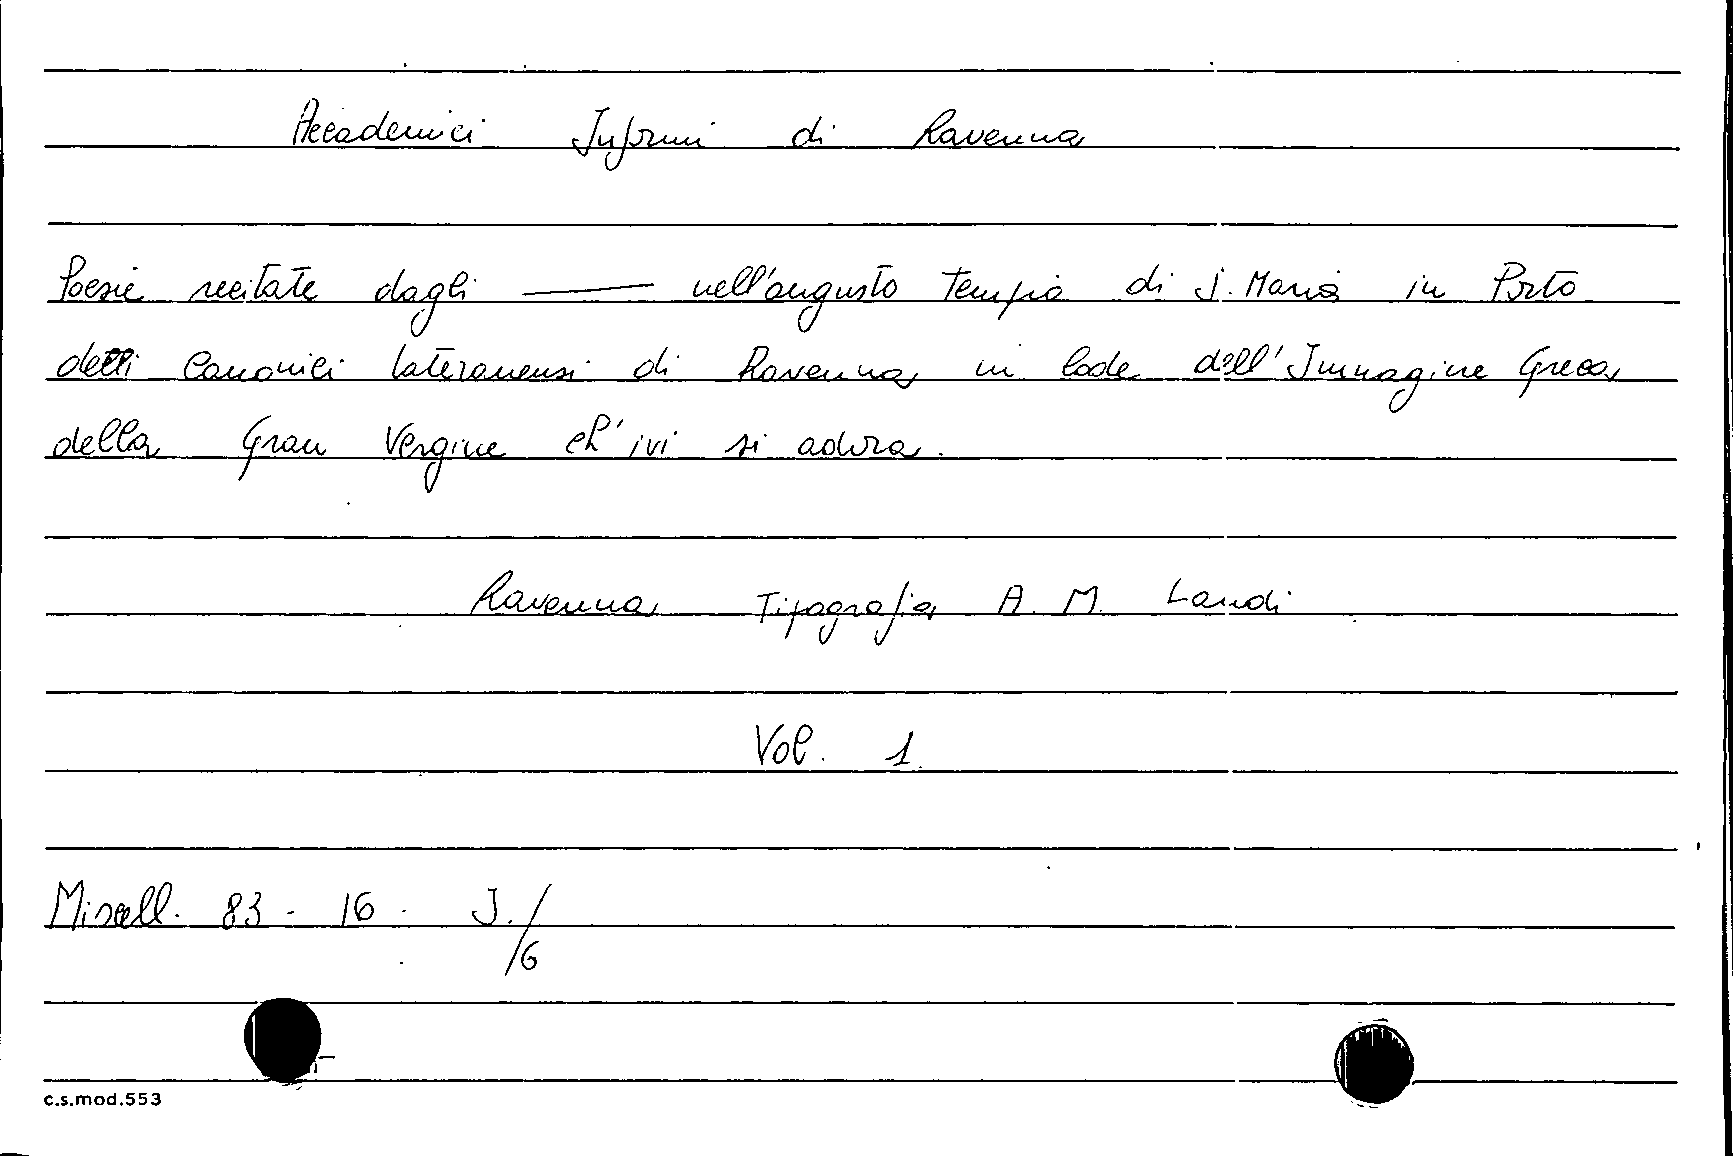 Accademici Informi di Ravenna
Poesie recitate dagli —— nell'augusto Tempio di S. Maria in Porto
detti Canonici lateranensi di Ravenna in lode dell'Immagine Greca
della Gran Vergine ch'ivi si adora.
Ravenna Tipografia A. M. Landi
Vol. 1.
Miscell. 83 - 16 - J./
/6
c.s.mod.553